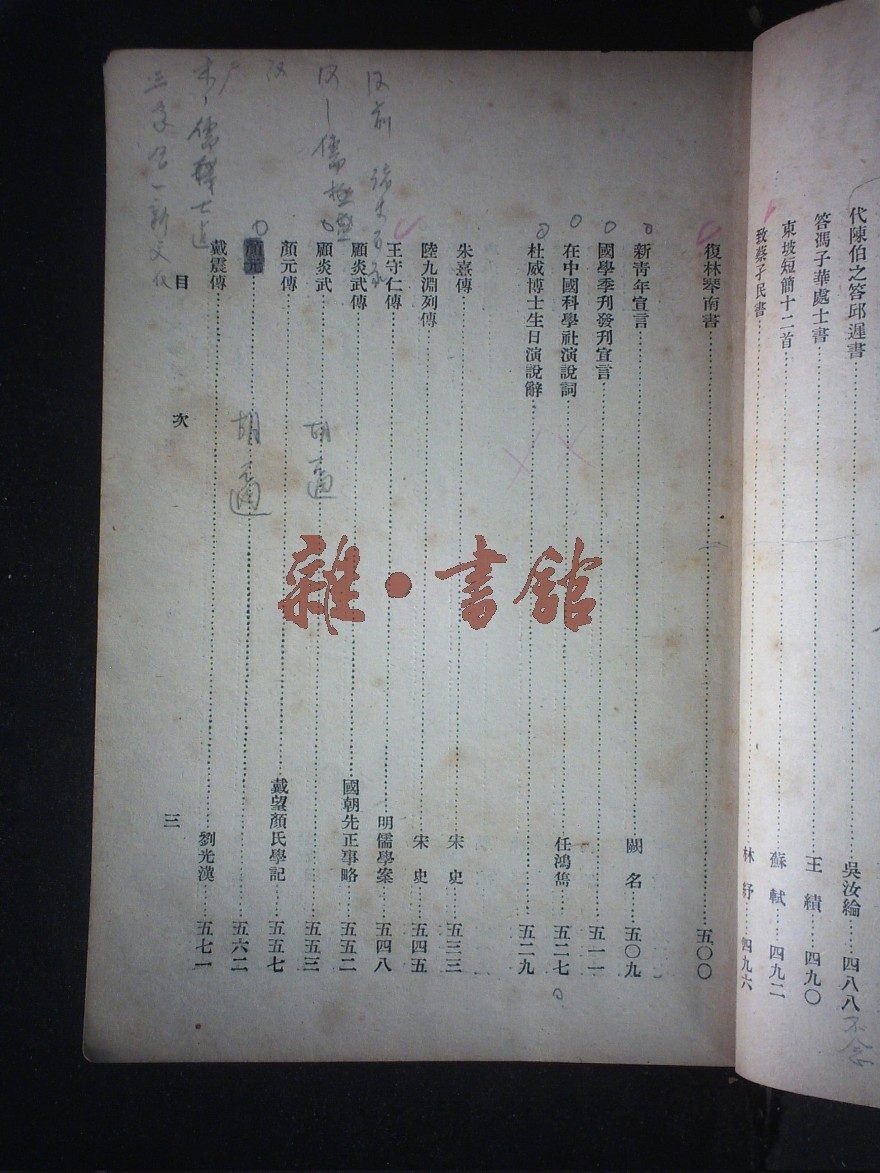 代陳伯之答邱遲書……吳汝綸……四八八
不念
答馮子華處士書……王績……四九〇
東坡短簡十二首……蘇軾……四九二
致蔡孑民書……林紓……四九六
復林琴南書……五〇〇
新青年宣言……闕名……五〇九
國學季刊發刊宣言……五一一
在中國科學社演說詞……任鴻雋……五二七
杜威博士生日演說辭……五二九
朱熹傳……宋史……五三三
陸九淵列傳……宋史……五四五
王守仁傳……明儒學案……五四八
顧炎武傳……國朝先正事略……五五二
顧炎武……五五三
胡適
顏元傳……戴望顏氏學記……五五七
顏元……五六二
胡適
戴震傳……劉光漢……五七一
目次
三
雜·書館